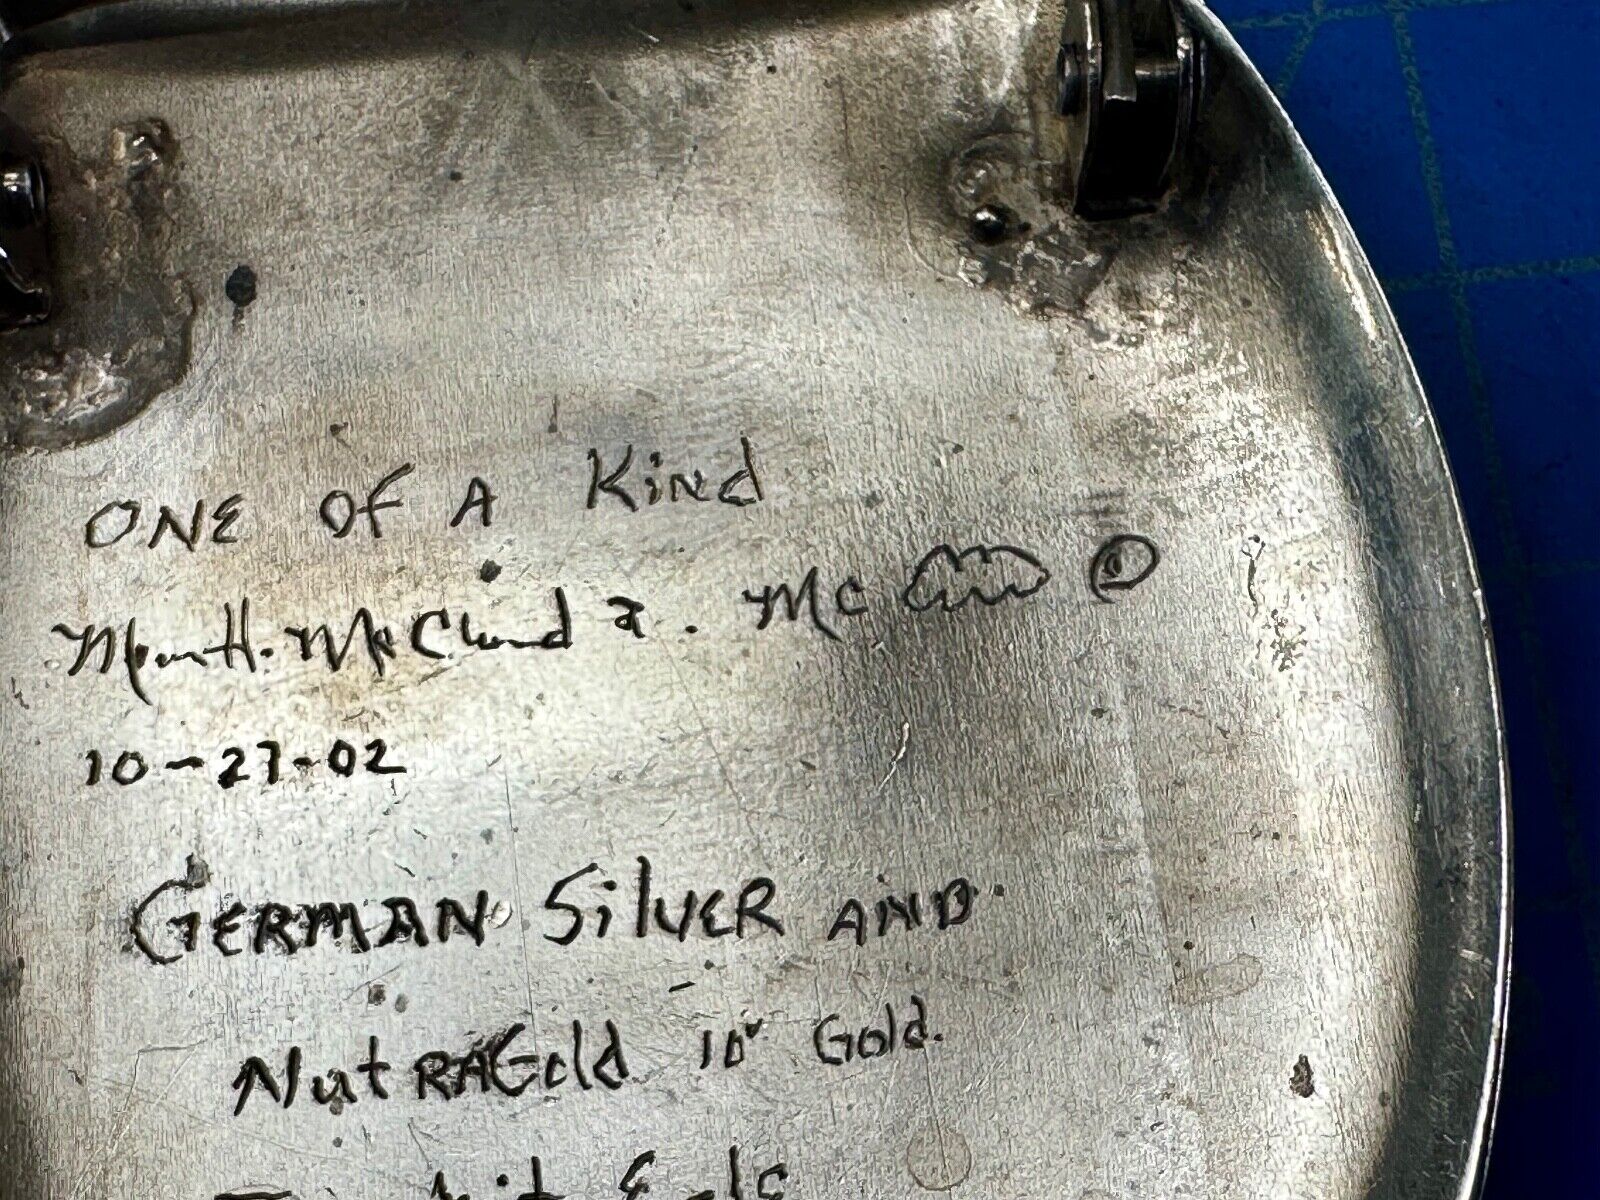 ONE Of A Kind
H. McCloud Mc
10-27-02
GERMAN SilVER AND
NutRAGold 10" Gold.